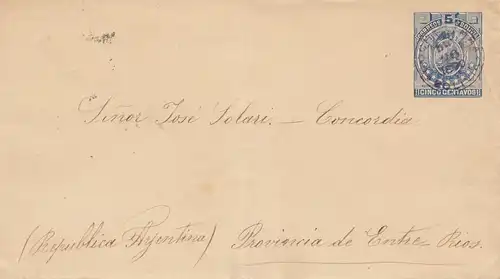 5
CINCO CENTAVOS
Señor José Solari. — Concordia
(Republica Argentina) Provincia de Entre Rios.